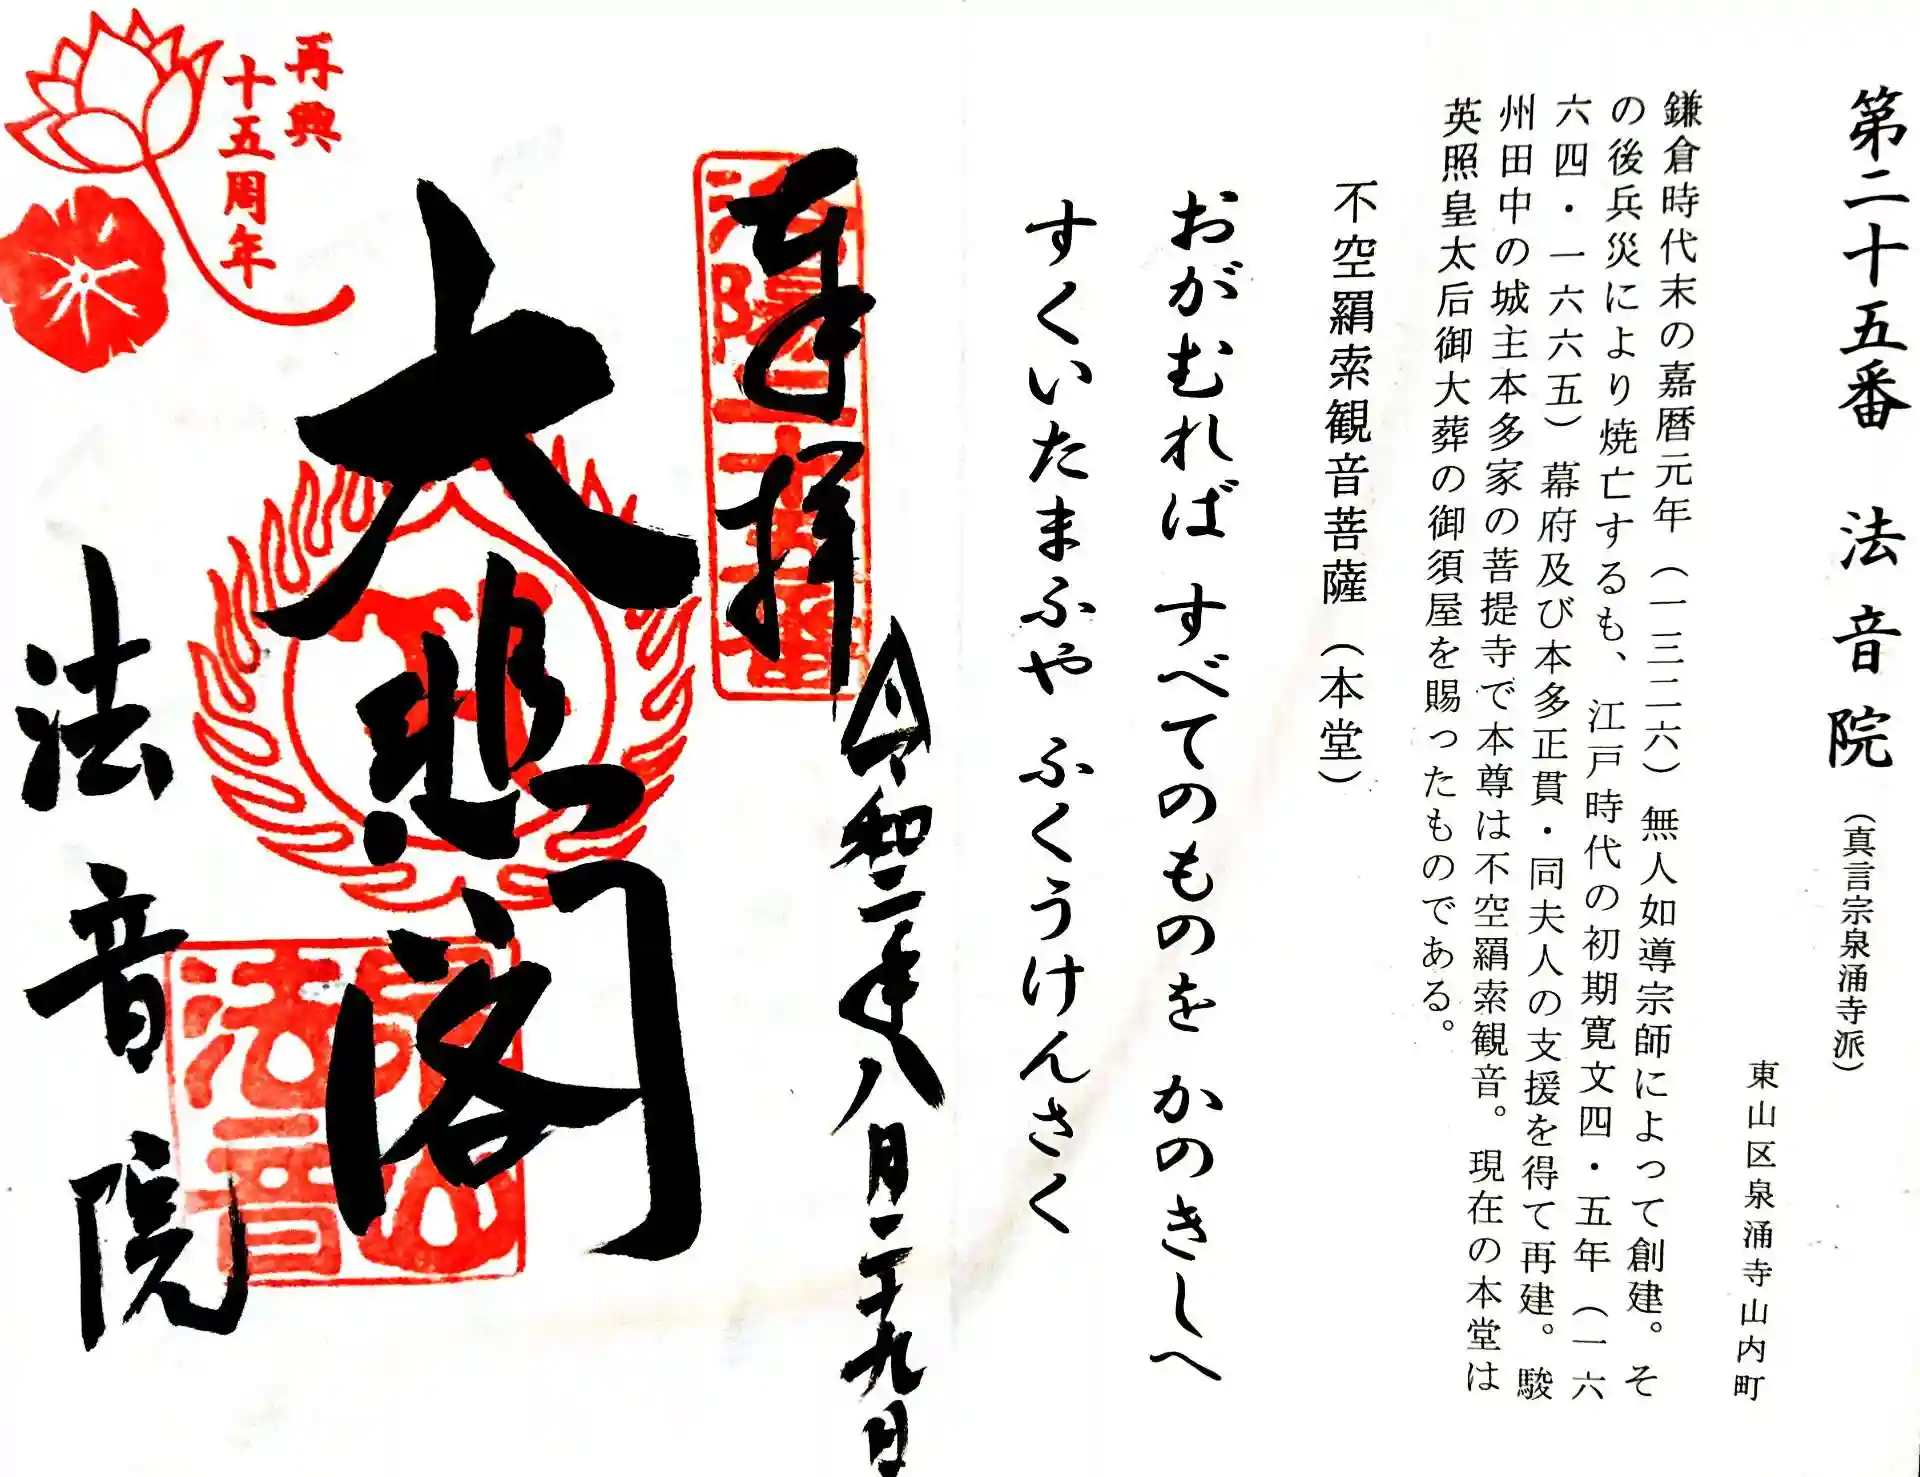 第二十五番 法音院（真言宗泉涌寺派）
東山区泉涌寺山内町
鎌倉時代末の嘉暦元年（一三二六）無人如導宗師によって創建。そ
の後兵災により焼亡するも、江戸時代の初期寛文四・五年（一六
六四・一六六五）幕府及び本多正貫・同夫人の支援を得て再建。駿
州田中の城主本多家の菩提寺で本尊は不空羂索観音。現在の本堂は
英照皇太后御大葬の御須屋を賜ったものである。
不空羂索観音菩薩（本堂）
おがむれば すべてのものを かのきしへ
すくいたまふや ふくうけんさく
奉拝
洛陽二十五番
令和二年八月二十九日
大悲閣
法音院
再興
十五周年